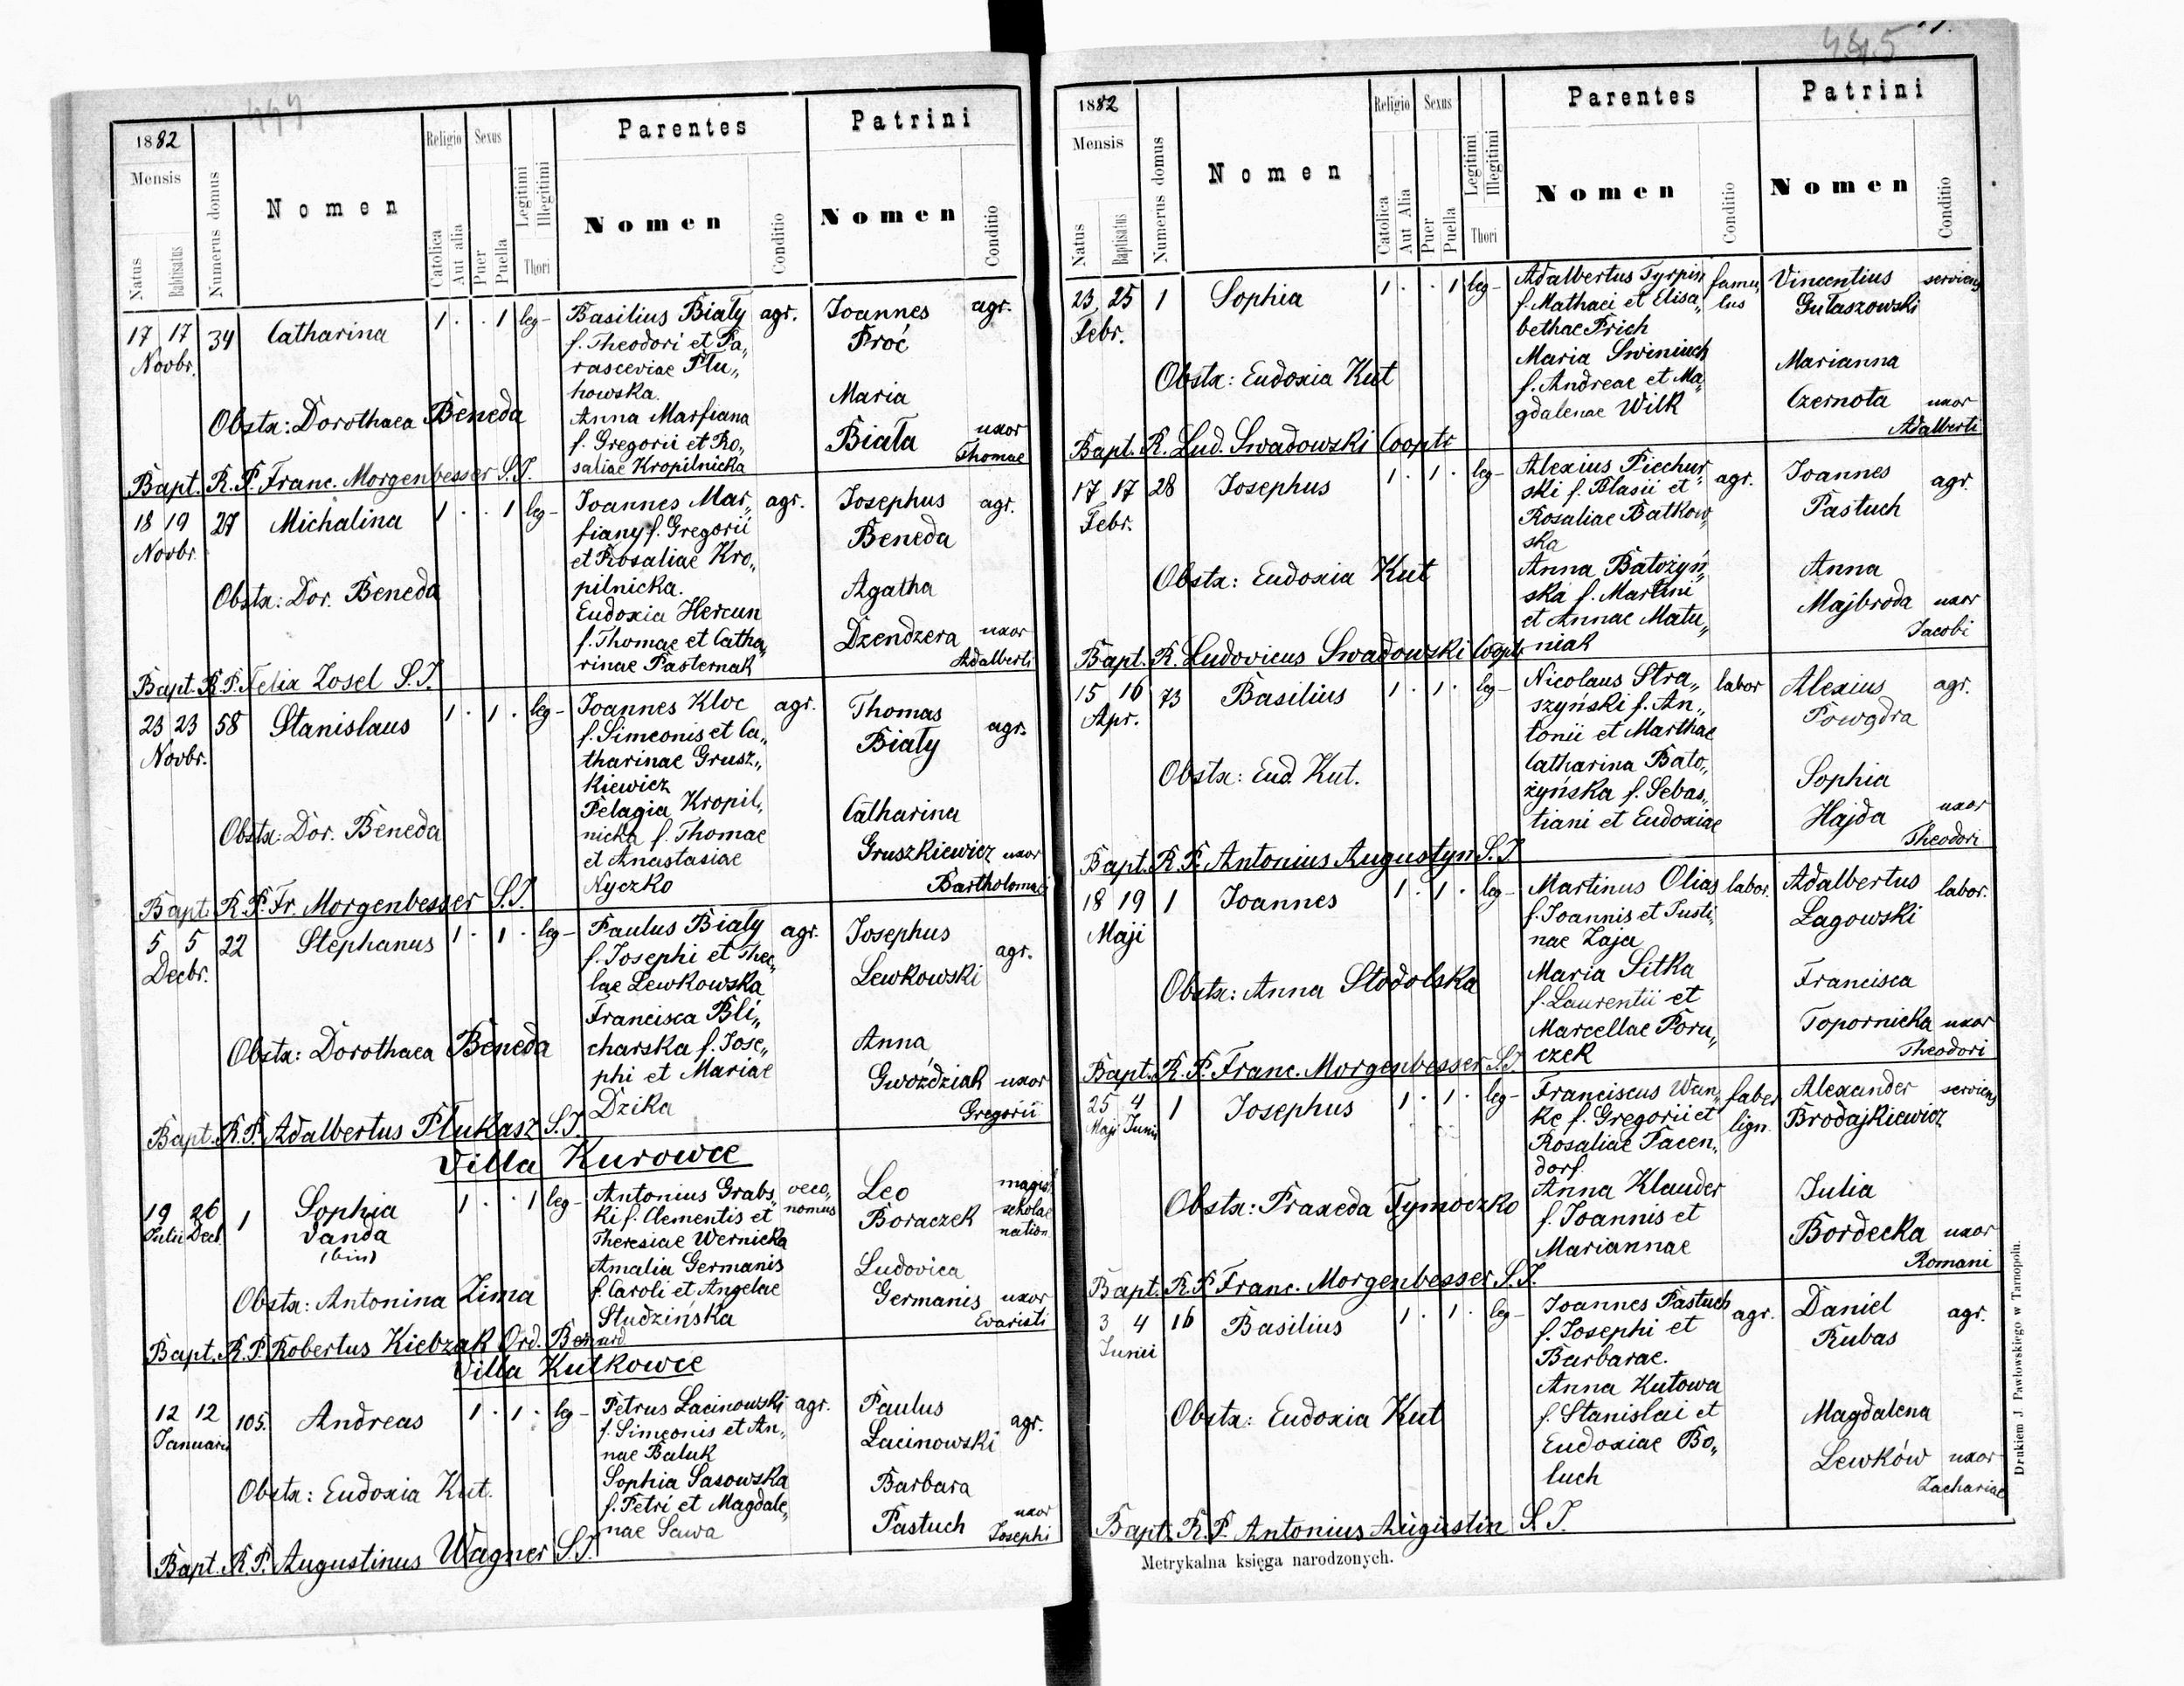 444
1882
Mensis
Natus
Babtisatus
Numerus domus
Nomen
Religio
Catolica
Aut alia
Sexus
Puer
Puella
Legitimi
Illegitimi
Thori
Parentes
Nomen
Conditio
Patrini
Nomen
Conditio
17 17 34 Catharina 1 . . 1 leg-
Novbr.
Basilius Biały agr.
f. Theodori et Pa„
rasceviae Płu„
howska.
Anna Marfiana
f. Gregorii et Ro„
saliae Kropilnicka
Joannes agr.
Proć
Maria
Biała uxor
Thomae
Obstx: Dorothaea Beneda
Bapt. R. P. Franc. Morgenbesser S.J.
18 19 27 Michalina 1 . . 1 leg-
Novbr.
Joannes Mar„ agr.
fiany f. Gregorii
et Rosaliae Kro„
pilnicka.
Eudoxia Hercun
f. Thomae et Catha„
rinae Pasternak
Josephus agr.
Beneda
Agatha
Dzendzera uxor
Adalberti
Obstx: Dor. Beneda
Bapt. R. P. Felix Zosel S.J.
23 23 58 Stanislaus 1 . 1 . leg-
Novbr.
Joannes Kloc agr.
f. Simeonis et Ca„
tharinae Grusz„
kiewicz
Pelagia Kropil„
nicka f. Thomae
et Anastasiae
Nyczko
Thomas
Biały agr.
Catharina
Gruszkiewicz uxor
Bartholomaei
Obstx: Dor. Beneda
Bapt. R. P. Fr. Morgenbesser S.J.
5 5 22 Stephanus 1 . 1 . leg-
Decbr.
Paulus Biały agr.
f. Josephi et Thec„
lae Lewkowska
Francisca Bli„
charska f. Jose„
phi et Mariae
Dzika
Josephus
Lewkowski agr.
Anna
Gwoździak uxor
Gregorii
Obstx: Dorothaea Beneda
Bapt. R. P. Adalbertus Plukasz S.J.
Villa Kurowce
19 26 1 Sophia 1 . . 1 leg-
Julii Decb. Vanda
(bin)
Antonius Grabs„ oeco„
ki f. Clementis et nomus
Theresiae Wernicka
Amalia Germanis
f. Caroli et Angelae
Studzińska
Leo magist.
Boraczek scholae
nation.
Ludovica
Germanis uxor
Evaristi
Obstx: Antonina Zima
Bapt. R. P. Robertus Kiebzak Ord. Bernard
Villa Kutkowce
12 12 105. Andreas 1 . 1 . leg-
Januarii
Petrus Łacinowski agr.
f. Simeonis et An„
nae Baluk
Sophia Sasowska
f. Petri et Magdale„
nae Sawa
Paulus
Łacinowski agr.
Barbara
Pastuch uxor
Josephi
Obstx: Eudoxia Kut.
Bapt. R. P. Augustinus Wagner S.J.
445
1882
Mensis
Natus
Baptisatus
Numerus domus
Nomen
Religio
Catolica
Aut Alia
Sexus
Puer
Puella
Legitimi
Illegitimi
Thori
Parentes
Nomen
Conditio
Patrini
Nomen
Conditio
23 25 1 Sophia 1 . . 1 leg-
Febr.
Adalbertus Tyrpin famu„
f. Mathaei et Elisa„ lus
bethae Frich
Maria Swiniuch
f. Andreae et Ma„
gdalenae Wilk
Vincentius serviens
Gułaszowski
Marianna
Czernota uxor
Adalberti
Obstx: Eudoxia Kut
Bapt. R. Lud. Swadowski Cooptr
17 17 28 Josephus 1 . 1 . leg-
Febr.
Alexius Piechur„ agr.
ski f. Blasii et
Rosaliae Batkow„
ska
Anna Batożyń„
ska f. Martini
et Annae Matu„
niak
Joannes agr.
Pastuch
Anna
Majbroda uxor
Jacobi
Obstx: Eudoxia Kut
Bapt. R. Ludovicus Swadowski Cooptr
15 16 73 Basilius 1 . 1 . leg-
Apr.
Nicolaus Stra„ labor
szyński f. An„
tonii et Marthae
Catharina Bato„
żyńska f. Sebas„
tiani et Eudoxiae
Alexius agr.
Powądra
Sophia
Hajda uxor
Theodori
Obstx: Eud. Kut.
Bapt. R. P. Antonius Augustyn S.J.
18 19 1 Joannes 1 . 1 . leg-
Maji
Martinus Olias labor.
f. Joannis et Justi„
nae Zaja
Maria Sitka
f. Laurentii et
Marcellae Poru„
czek
Adalbertus labor.
Łagowski
Francisca
Topornicka uxor
Theodori
Obstx: Anna Stodolska
Bapt. R. P. Franc. Morgenbesser S.J.
25 4 1 Josephus 1 . 1 . leg-
Maji Junii
Franciscus Wan„ faber
ke f. Gregorii et lign.
Rosaliae Pacen„
dorf.
Anna Klauder
f. Joannis et
Mariannae
Alexander serviens
Brodajkiewicz
Julia
Bordecka uxor
Romani
Obstx: Praxeda Tymoczko
Bapt. R. P. Franc. Morgenbesser S.J.
3 4 16 Basilius 1 . 1 . leg-
Junii
Joannes Pastuch agr.
f. Josephi et
Barbarae.
Anna Kutowa
f. Stanislai et
Eudoxiae Bo„
luch
Daniel agr.
Rubas
Magdalena
Lewków uxor
Zachariae
Obstx: Eudoxia Kut
Bapt. R. P. Antonius Augustin S.J.
Metrykalna księga narodzonych.
Drukiem J. Pawłowskiego w Tarnopolu.